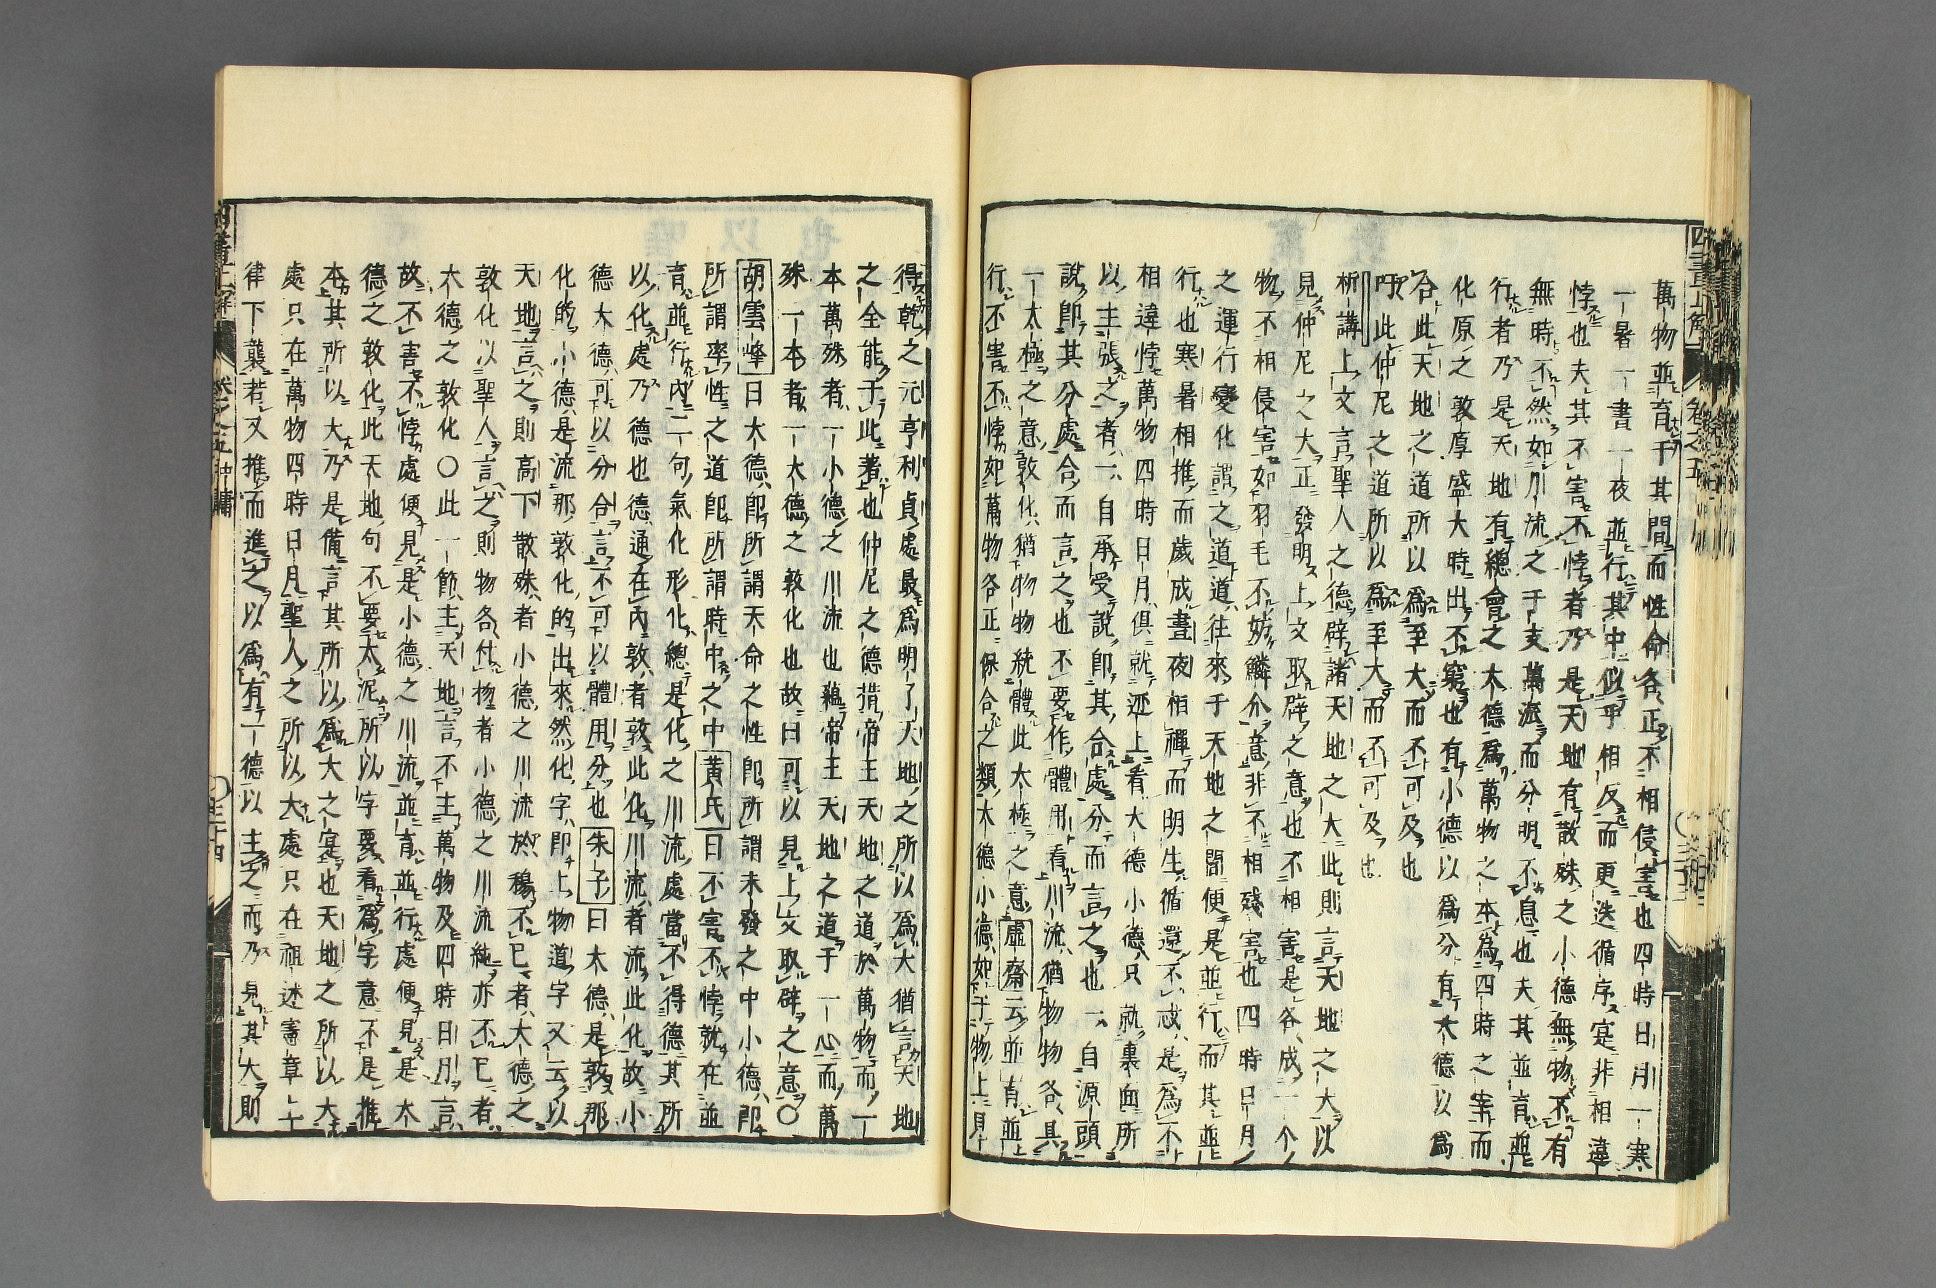 萬物並育于其間而性命各正不相侵害也四時日月一寒
一暑一晝一夜並行其中似乎相反而更迭循序寔非相違
悖也夫其不害不悖者乃是天地有散殊之小德無物不有
無時不然如川流之千支萬派而分明不息也夫其並育並
行者乃是天地有總會之大德爲萬物之本爲四時之宰而
化原之敦厚盛大時出不窮也有小德以爲分有大德以爲
合此天地之道所以爲至大而不可及也
吁此仲尼之道所以爲至大而不可及也
析講上文言聖人之德辟諸天地之大此則言天地之大以
見仲尼之大正發明上文取辟之意也不相害是各成一个
物不相侵害如羽毛不妨鱗介意非不相殘害也四時日月
之運行變化謂之道道往來于天地之間便是並行而其並
行也寒暑相推而歲成晝夜相禪而明生循還不忒是爲不
相違悖萬物四時日月俱就迹上看大德小德只就裏面所
以主張之者一自承受說卽其合處分而言之也一自源頭
說卽其分處合而言之也不要作體用看川流猶物物各具
一太極之意敦化猶物物統體此太極之意虛齋云並育並
行不害不悖如萬物各正保合之類大德小德如于物上見
得乾之元亨利貞處最爲明了天地之所以爲大猶言天地
之全能于此著也仲尼之德猶帝王天地之道於萬物而一
本萬殊者一小德之川流也蘊帝王天地之道于一心而萬
殊一本者一大德之敦化也故曰可以見上文取辟之意〇
胡雲峰曰大德卽所謂天命之性卽所謂未發之中小德卽
所謂率性之道卽所謂時中之中黃氏曰不害不悖就在並
育並行內二句氣化形化總是化之川流處當不得德其所
以化處乃德也德通在內敦者敦此化川流者流此化故小
德大德可以分合言不可以體用分也朱子曰大德是敦那
化的小德是流那敦化的出來然化字卽上物道字又云以
天地言之則高下散殊者小德之川流於穆不已者大德之
敦化以聖人言之則物各付物者小德之川流純亦不已者
大德之敦化〇此一節主天地言不主萬物及四時日月言
故不害不悖處便見是小德之川流並育並行處便見是大
德之敦化此天地句不要太泥所以字要看爲字意不是推
本其所以大乃是備言其所以爲大之寔也天地之所以大
處只在萬物四時日月聖人之所以大處只在祖述憲章上
律下襲若又推而進之以爲有一德以主之而乃見其大則